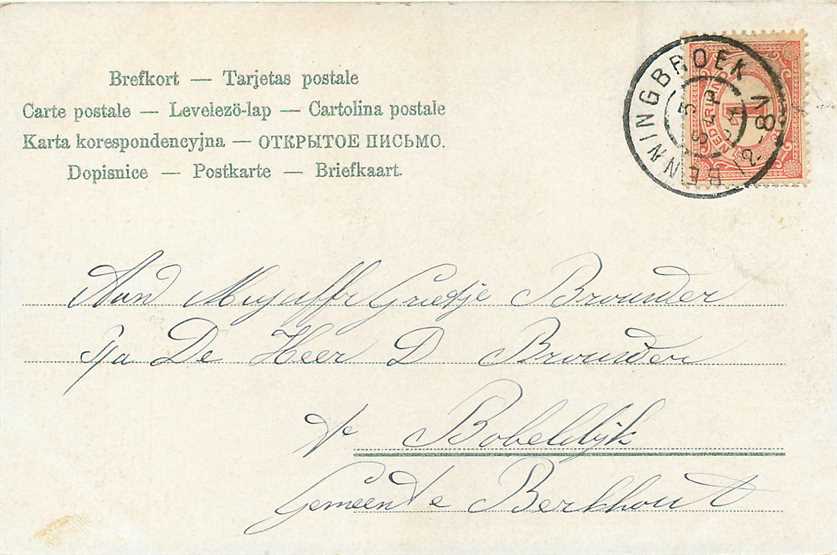 Brefkort — Tarjetas postale
Carte postale — Levelező-lap — Cartolina postale
Karta korespondencyjna — ОТКРЫТОЕ ПИСЬМО.
Dopisnice — Postkarte — Briefkaart.
BENNINGBROEK
5 SEP
12-8V
1
Aan Mejuffr Grietje Brounder
p/a De Heer D Brounder
te Bobeldijk
Gemeente Berkhout